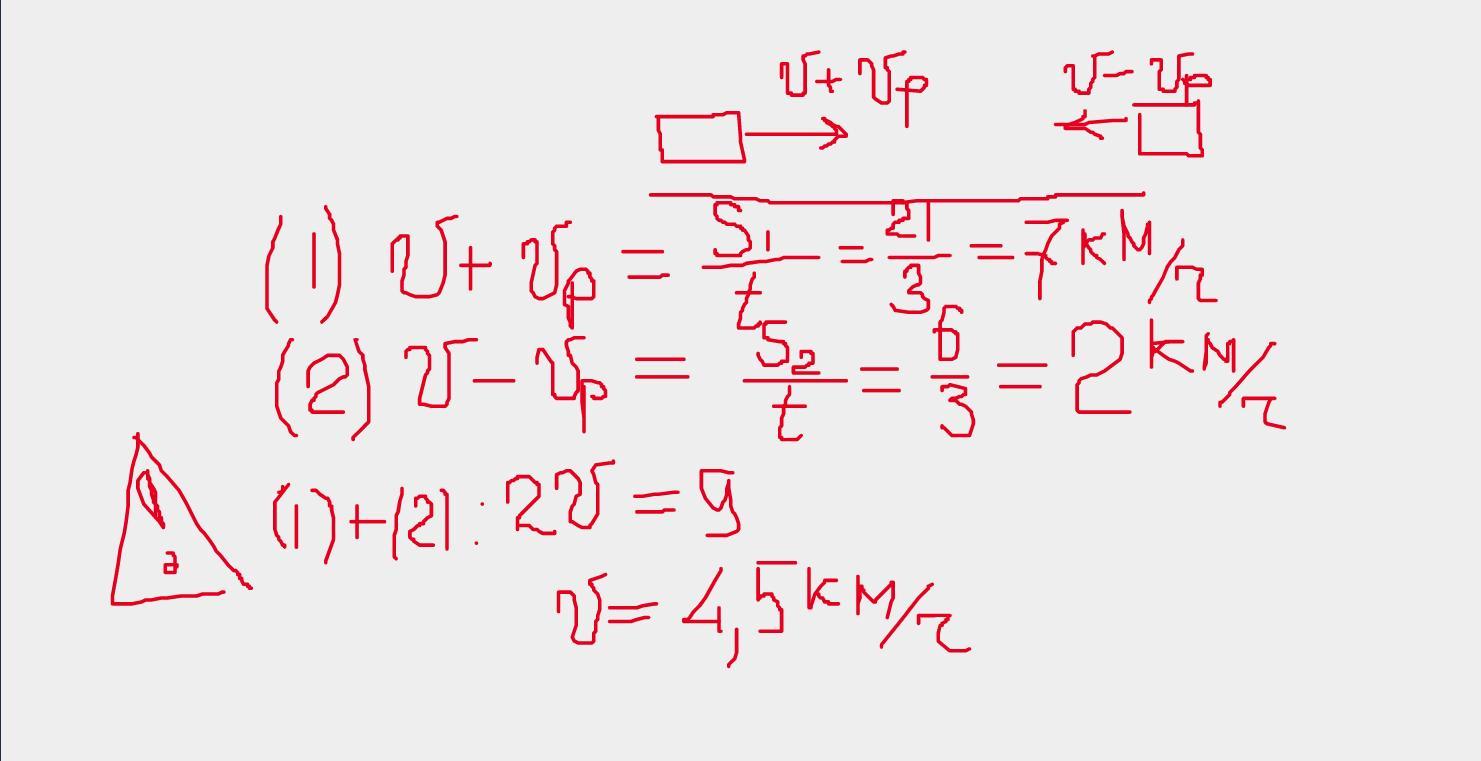 v + vₚ v - vₚ
(1) v + vₚ = S₁/t = 21/3 = 7 км/г
(2) v - vₚ = S₂/t = 6/3 = 2 км/г
(1)+(2): 2v = 9
v = 4,5 км/г